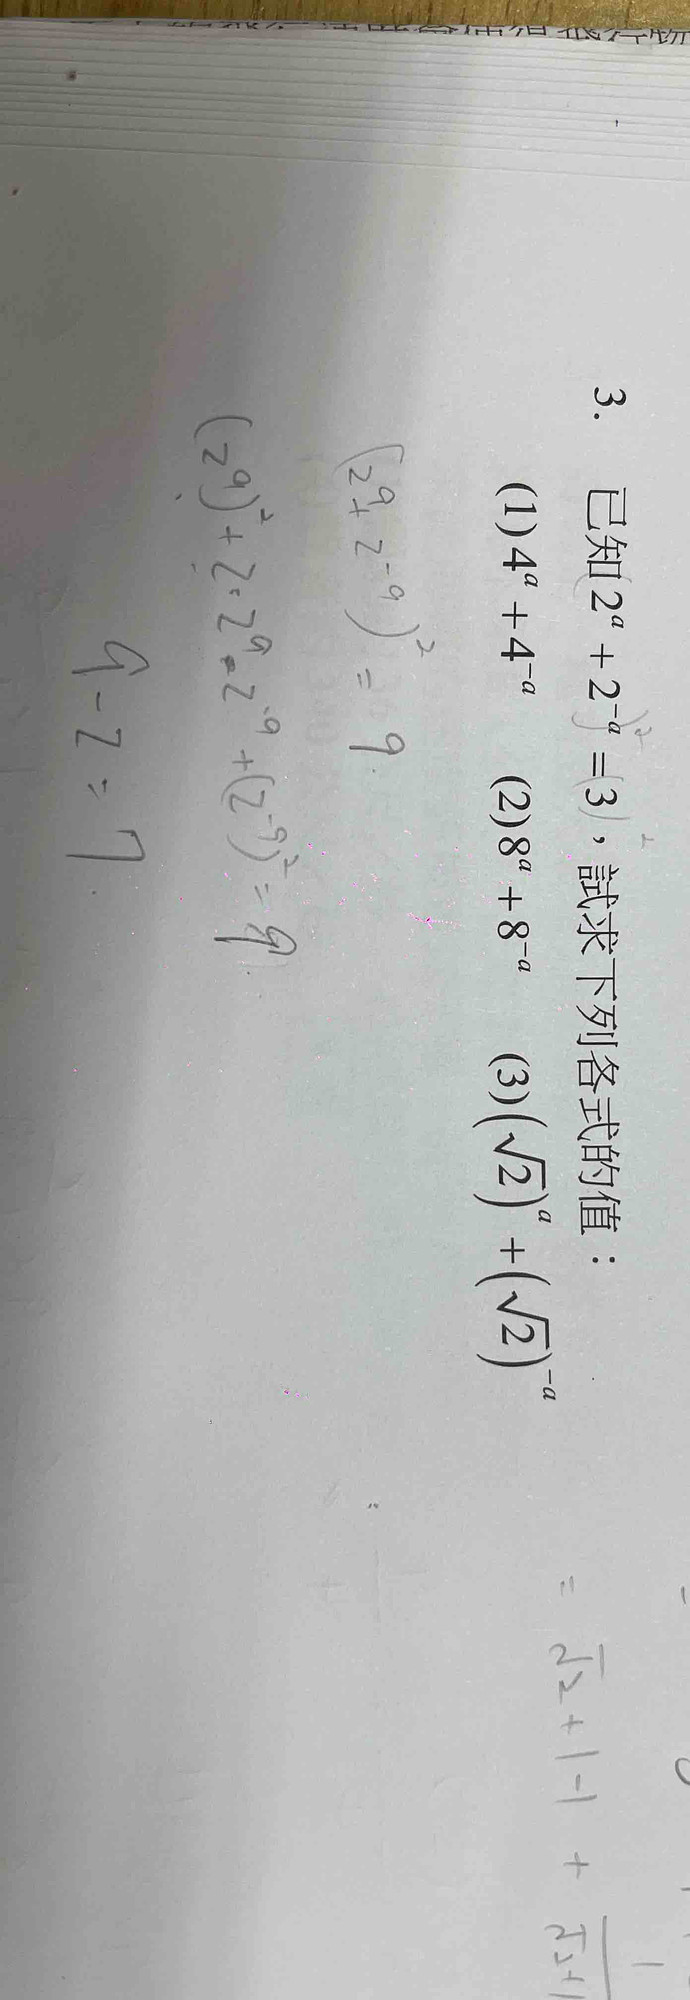 3. 已知 2^a + 2^{-a} = 3，試求下列各式的值：
(1) 4^a + 4^{-a} (2) 8^a + 8^{-a} (3) (√2)^a + (√2)^{-a}
(2^a + 2^{-a})^2 = 9.
(2^a)^2 + 2·2^a·2^{-a} + (2^{-a})^2 = 9.
9 - 2 = 7.
= √2 + 1 - 1 + 1/(√2+1)